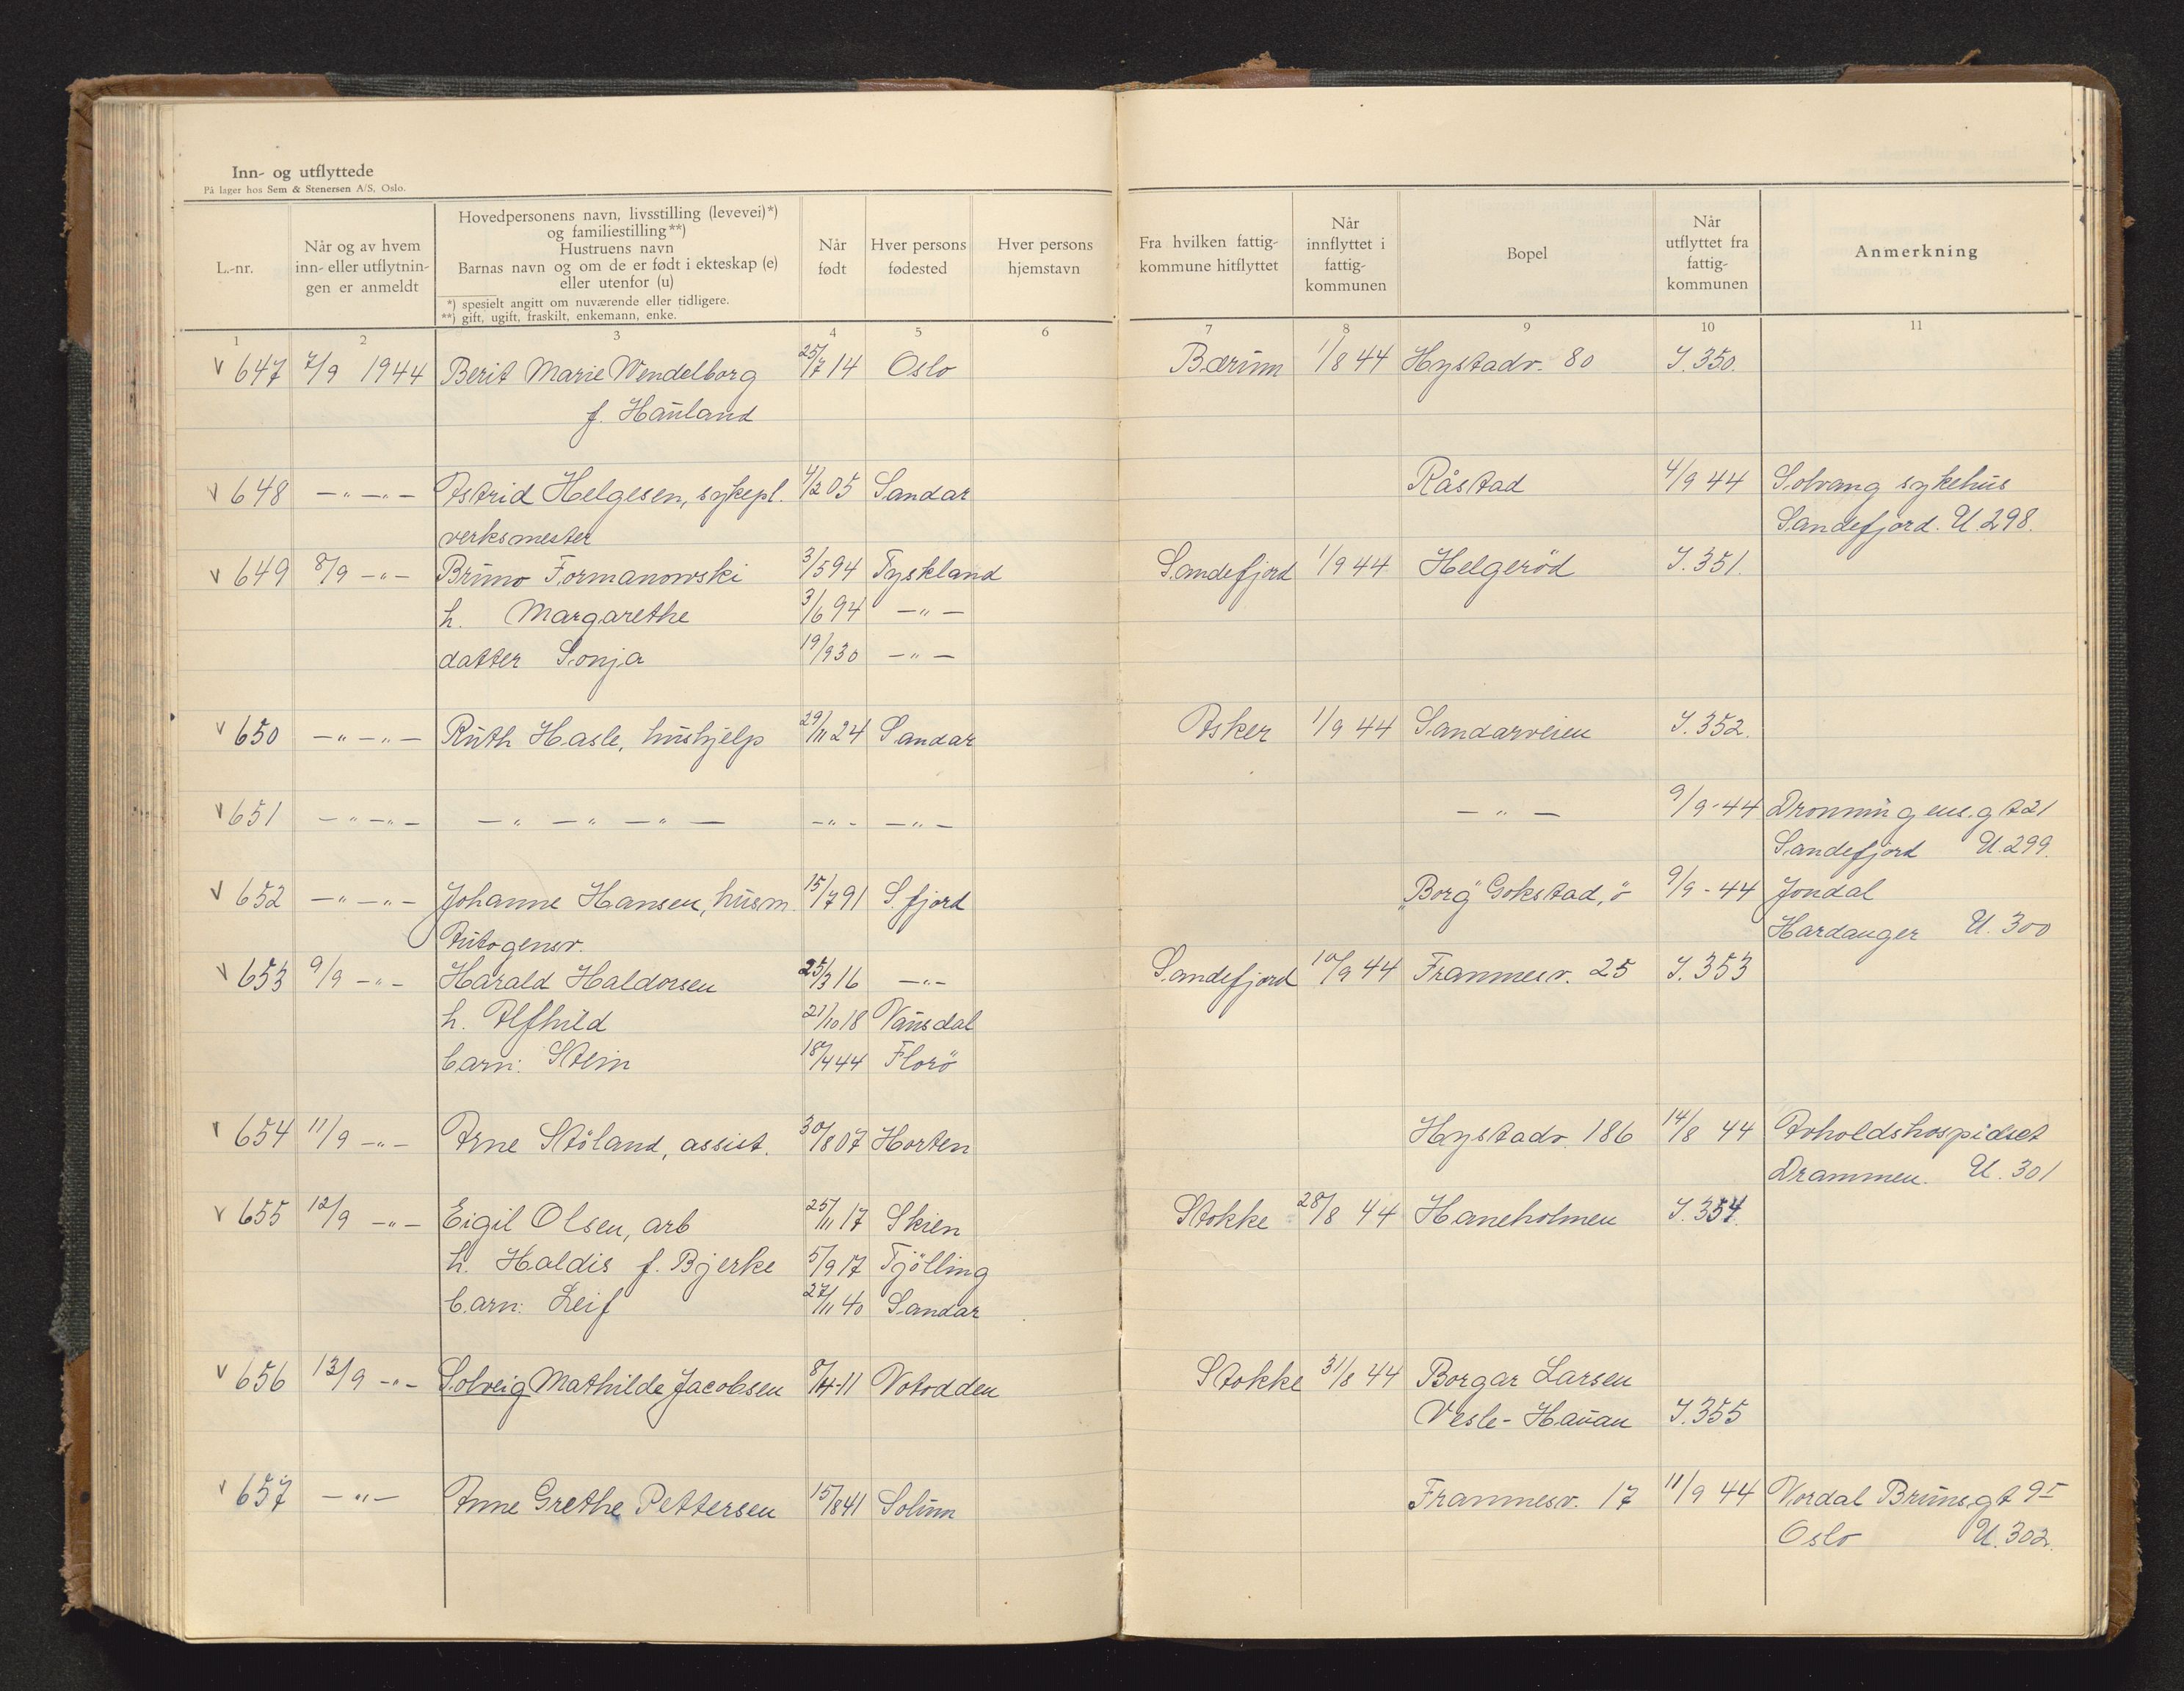 Inn- og utflyttede
På lager hos Sem & Stenersen A/S, Oslo.
L.-nr.
Når og av hvem
inn- eller utflytnin-
gen er anmeldt
Hovedpersonens navn, livsstilling (levevei)*)
og familiestilling**)
Hustruens navn
Barnas navn og om de er født i ekteskap (e)
eller utenfor (u)
*) spesielt angitt om nuværende eller tidligere.
**) gift, ugift, fraskilt, enkemann, enke.
Når
født
Hver persons
fødested
Hver persons
hjemstavn
Fra hvilken fattig-
kommune hitflyttet
Når
innflyttet i
fattig-
kommunen
Bopel
Når
utflyttet fra
fattig-
kommunen
Anmerkning
1 2 3 4 5 6 7 8 9 10 11
v 647 7/9 1944 Berit Marie Wendelborg 25/7 14 Oslo Bærum 1/8 44 Hystadv. 80 I. 350.
f. Hauland
v 648 -"- -"- Astrid Helgesen, sykepl. 4/2 05 Sandar Råstad 4/9 44 Solvang sykehus
verksmester Sandefjord. U. 298.
v 649 8/9 -"- Bruno Formanowski 3/5 94 Tyskland Sandefjord 1/9 44 Helgeröd I. 351.
h. Margarethe 3/6 94 -"-
datter Sonja 19/9 30 -"-
v 650 -"- -"- Ruth Hasle, hushjelp 29/11 24 Sandar Asker 1/9 44 Sandarveien I. 352.
v 651 -"- -"- -"- -"- -"- -"- -"- -"- 9/9-44 Dronningens.gt 21
Sandefjord U. 299.
v 652 -"- -"- Johanne Hansen, husm. 15/7 91 S.fjord "Borg" Gokstad, ö 9/9-44 Jondal
Autogensv. Hardanger U. 300
v 653 9/9 -"- Harald Haldorsen 25/3 16 -"- Sandefjord 10/9 44 Framnesv. 25 I. 353
h. Alfhild 21/10 18 Vausdal
barn: Stein 18/4 44 Florö
v 654 11/9 -"- Arne Stöland, assist. 30/8 07 Horten Hystadv. 186 14/8 44 Avholdshospidset
Drammen. U. 301
v 655 12/9 -"- Eigil Olsen, arb 25/11 17 Skien Stokke 28/8 44 Haneholmen I. 354.
h. Haldis f. Bjerke 5/9 17 Tjölling
barn: Leif 27/11 40 Sandar
v 656 13/9 -"- Solveig Mathilde Jacobsen 8/4-11 Notodden Stokke 31/8 44 Borgar Larsen
Vesle-Hauan I. 355
v 657 -"- Anne Grethe Pettersen 15/8 41 Solum Framnesv. 17 11/9 44 Nordal Bruns.gt 9 I
Oslo U. 302.